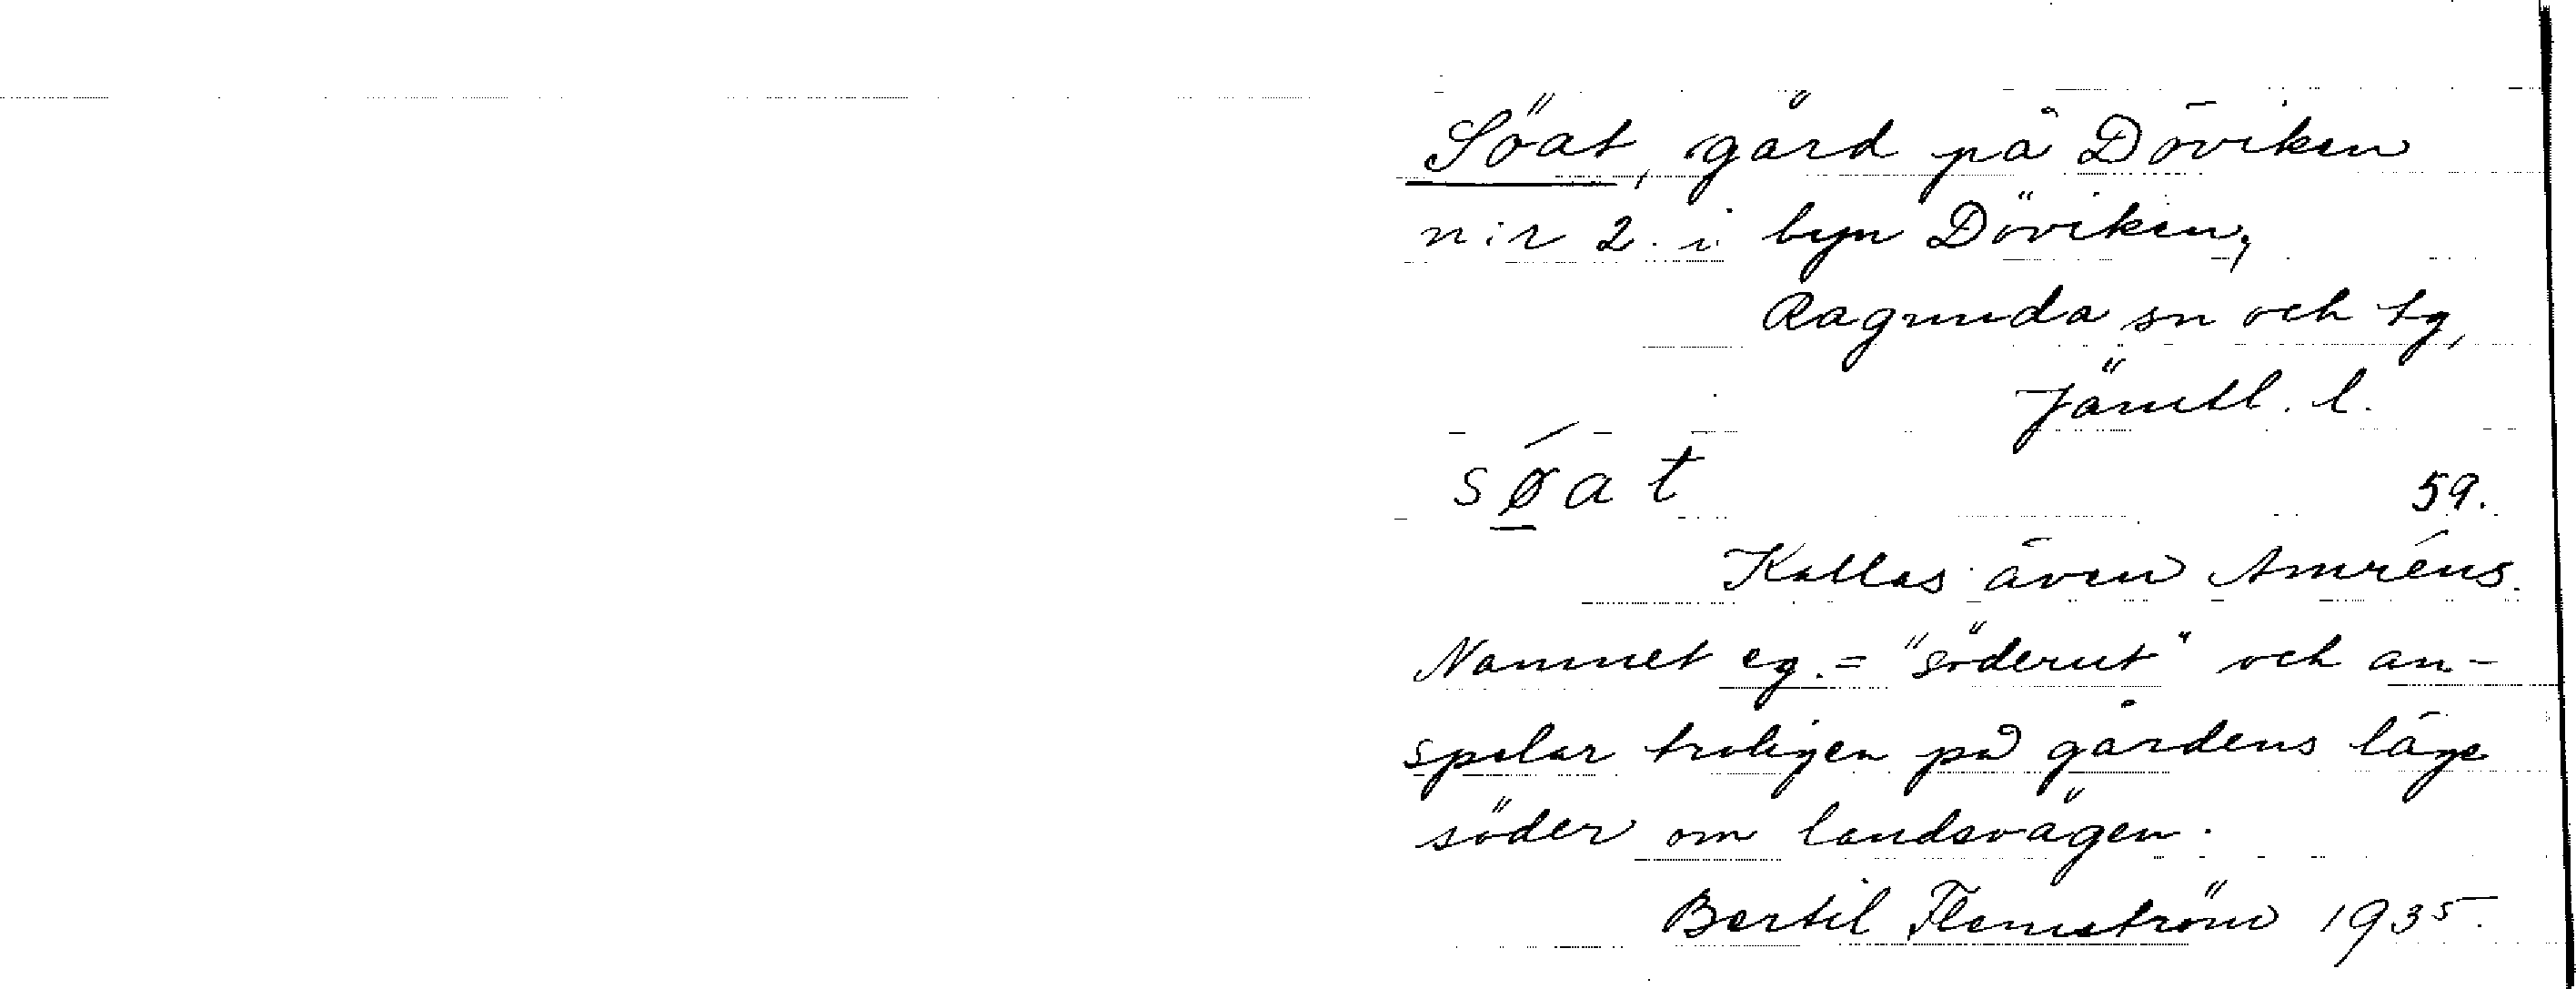 Söat, gård på Döviken
n:r 2 i byn Döviken,
Ragunda sn och tg,
Jämtl. l.
sǿ̲at 59.
Kallas även Amréns.
Namnet eg. = "söderut" och an-
spelar troligen på gårdens läge
söder om landsvägen.
Bertil Flemström 1935.